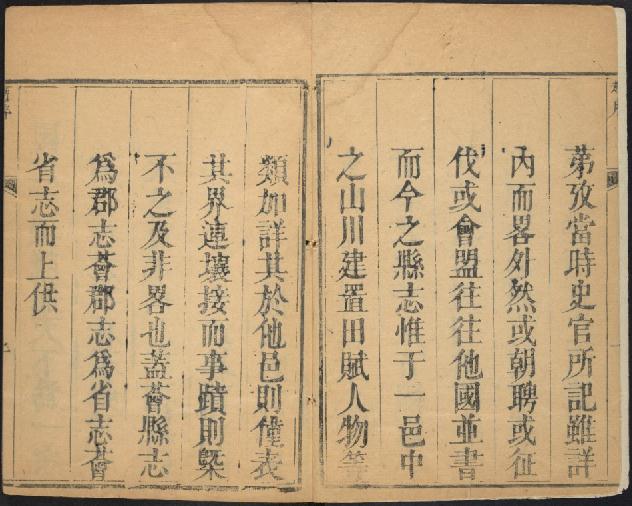 苐攷當時史官所記雖詳
內而畧外然或朝聘或征
伐或會盟往往他國並書
而今之縣志惟于一邑中
之山川建置田賦人物等
類加詳其於他邑則僅表
其界連壤接而事蹟則槩
不之及非畧也蓋薈縣志
為郡志薈郡志為省志薈
省志而上供